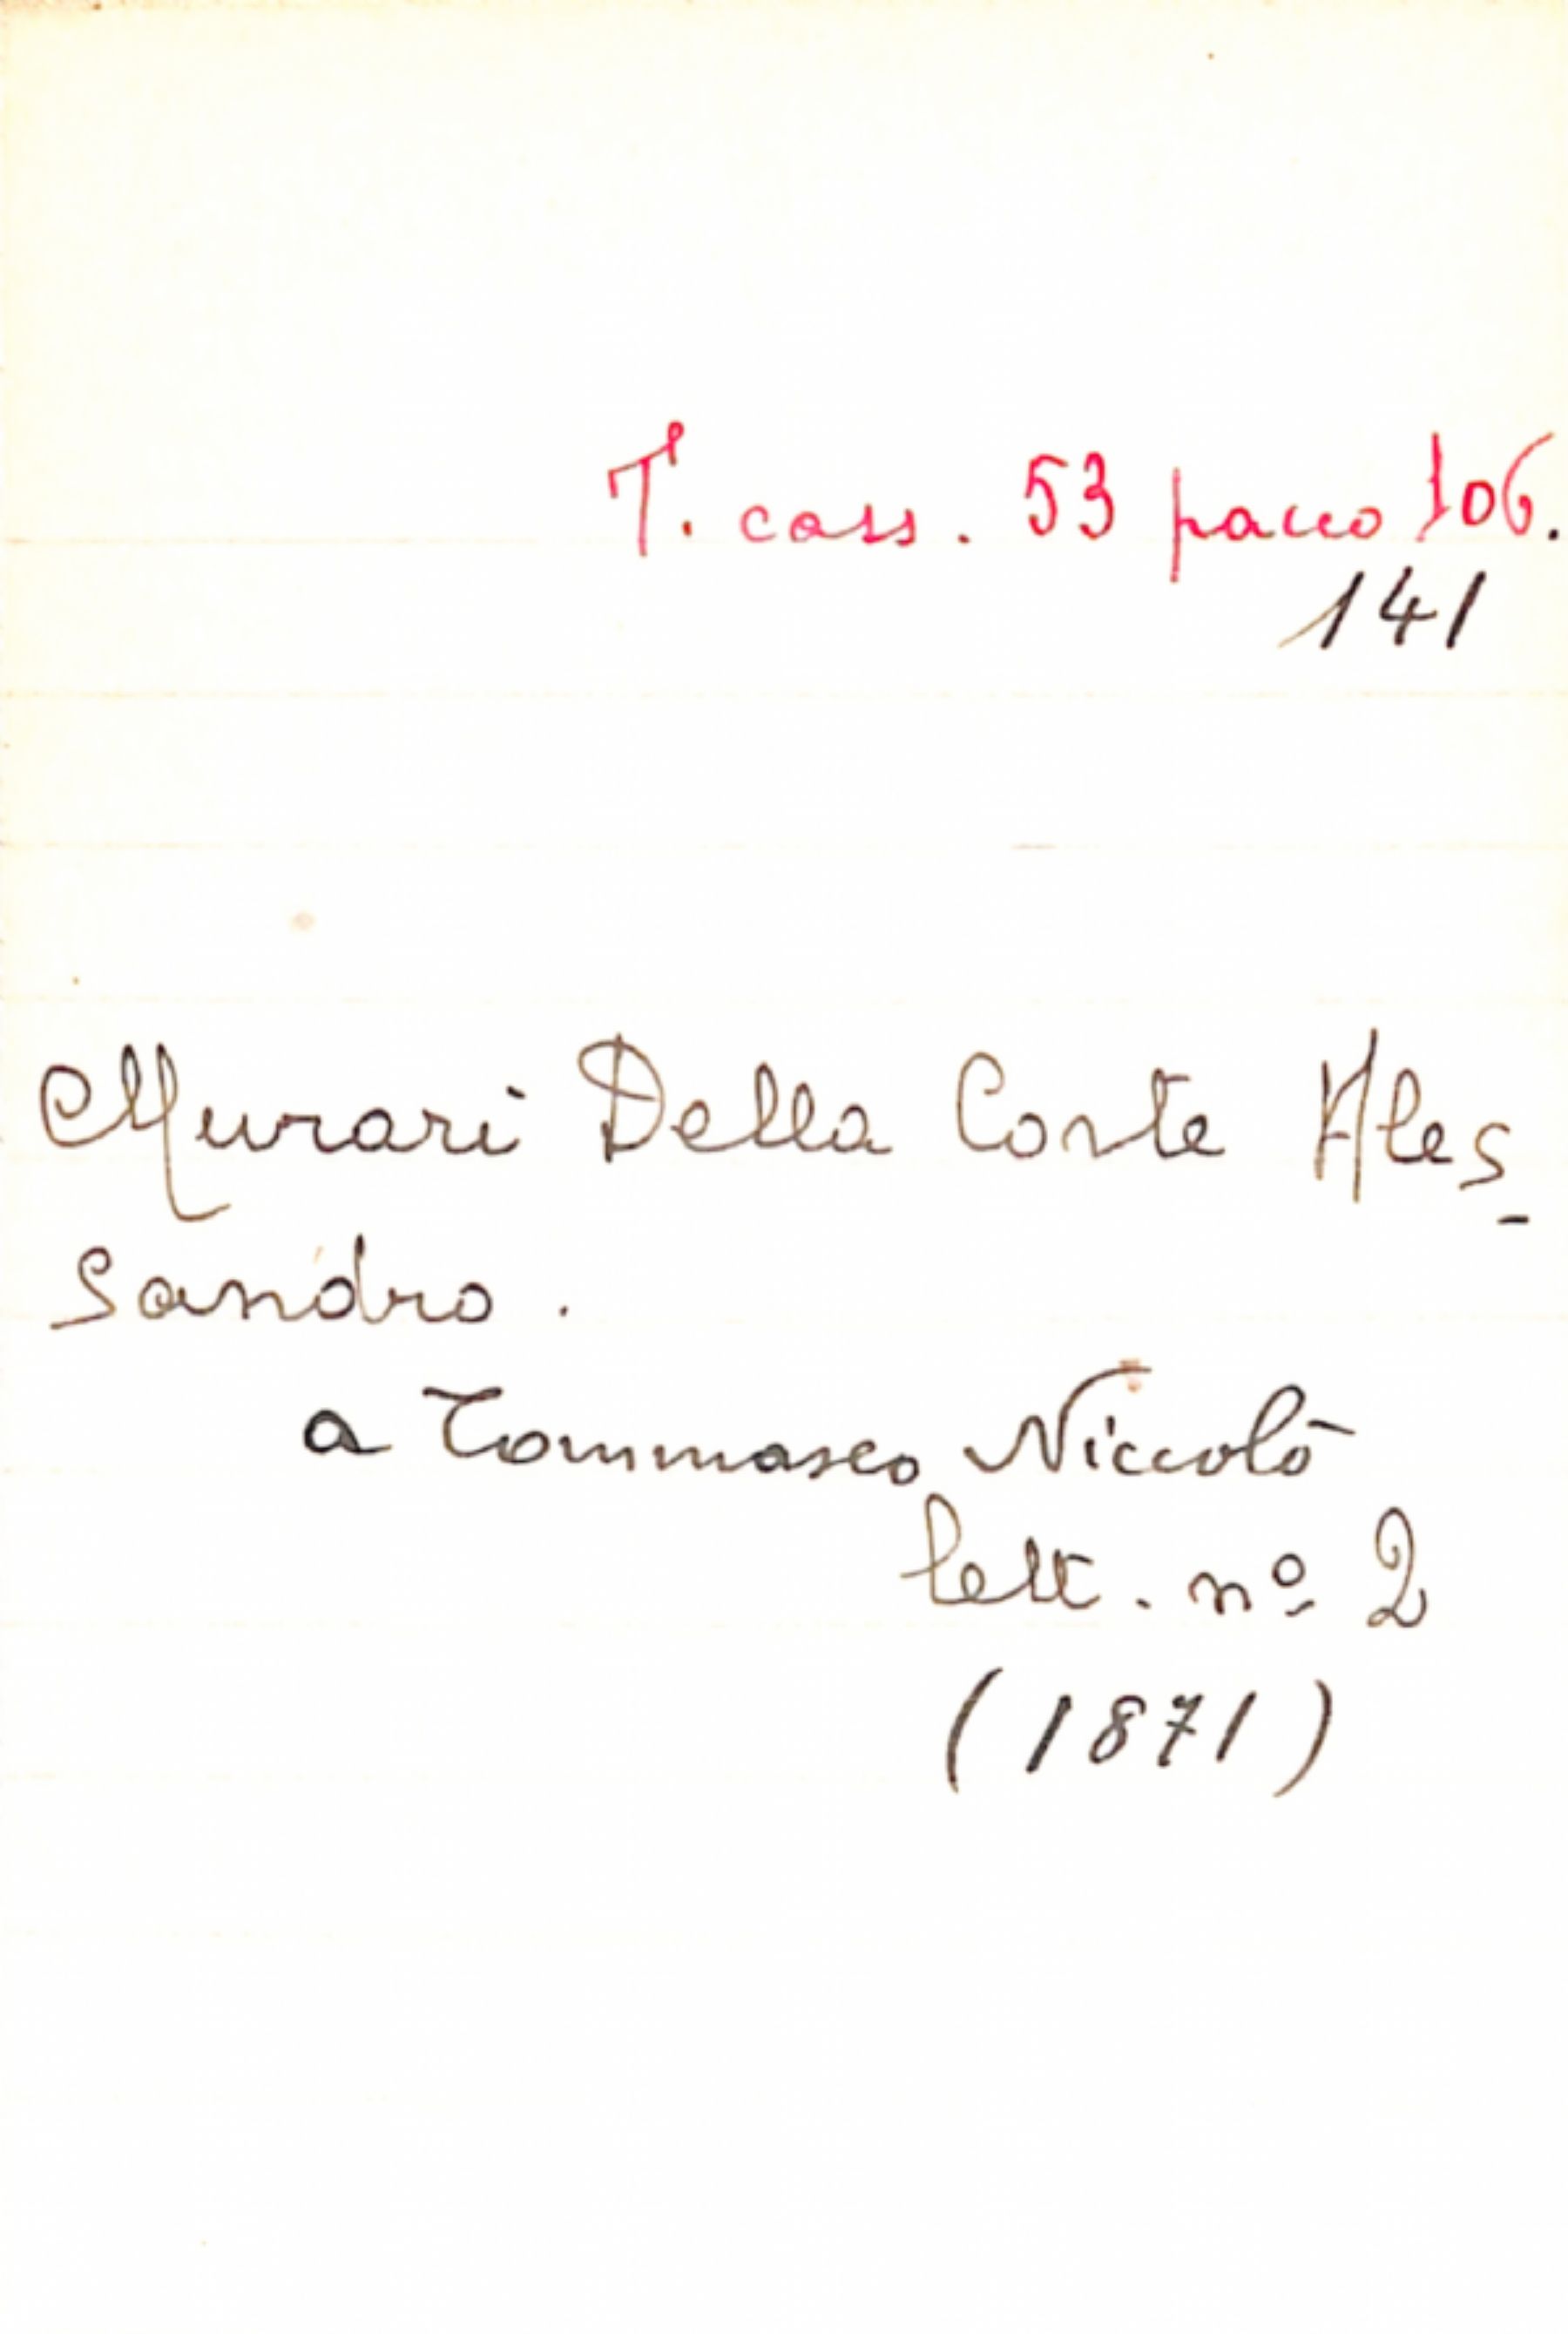 T. cass. 53 pacco 106.
141
Murari Della Corte Ales-
sandro.
a Tommaseo Niccolò
lett. nº 2
(1871)